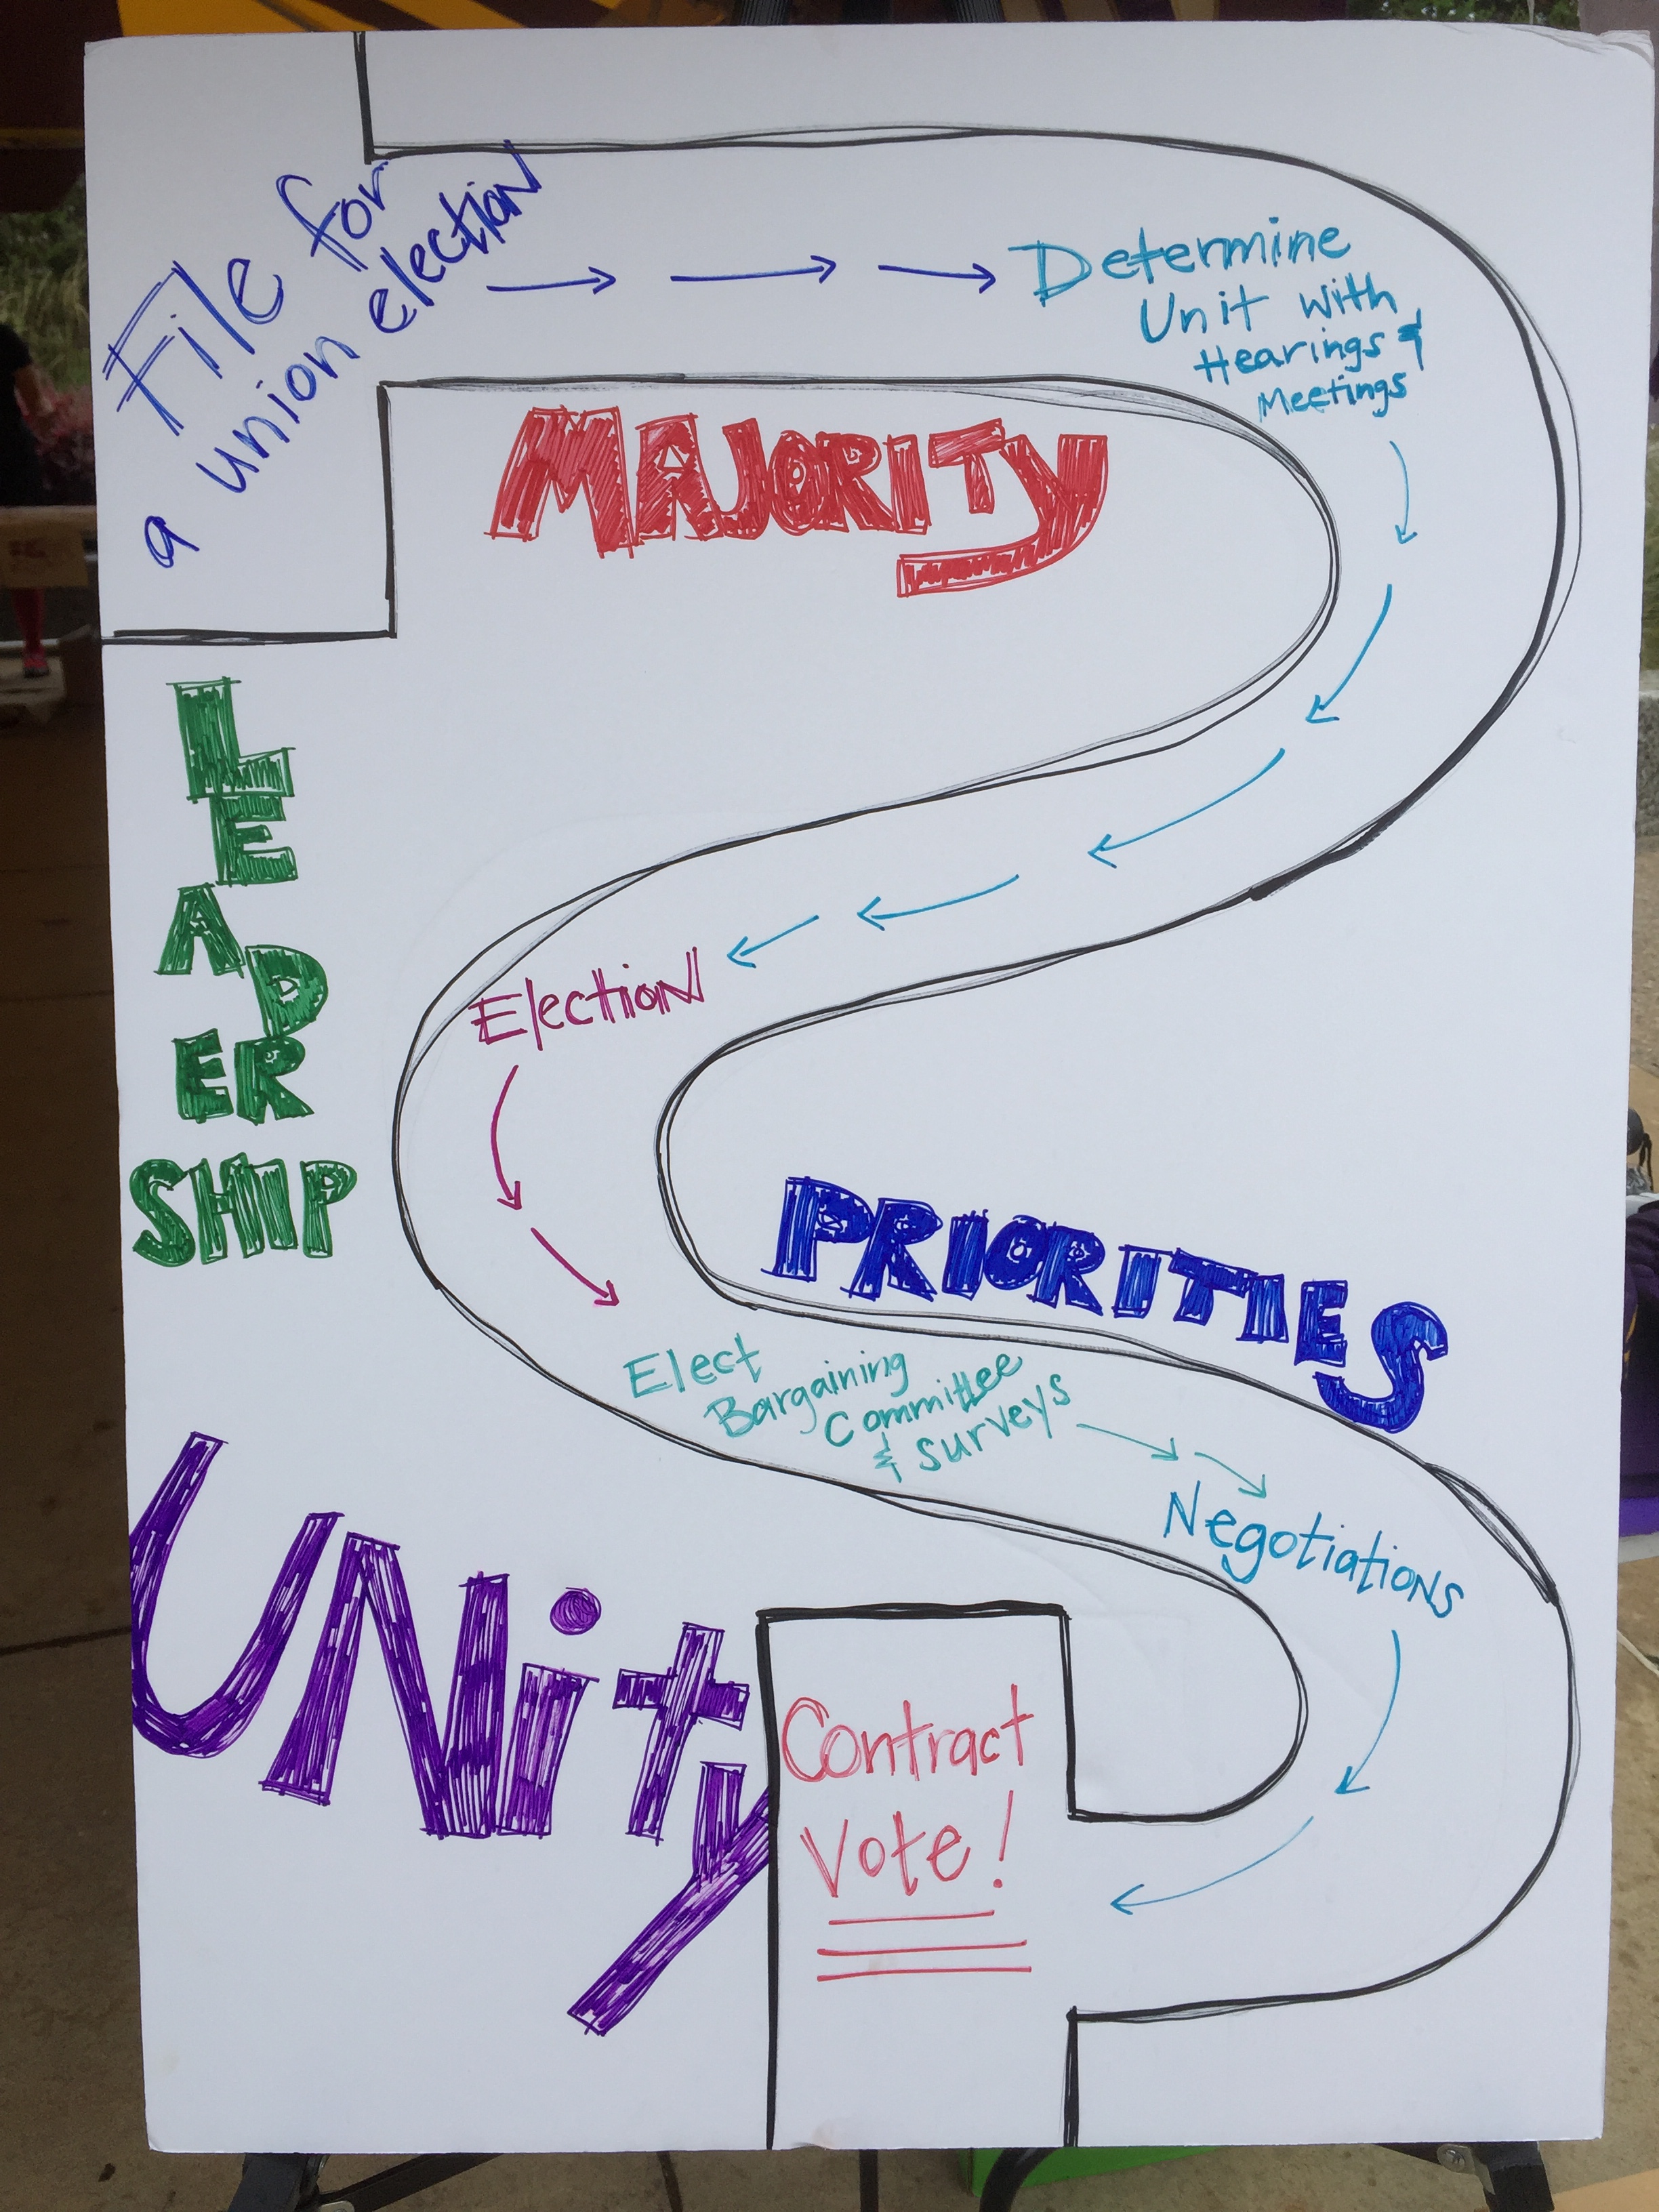 File for
a union election
Determine
Unit with
Hearings &
Meetings
MAJORITY
LEADERSHIP
Election
PRIORITIES
Elect
Bargaining
Committee
& surveys
Negotiations
UNity
Contract
Vote!